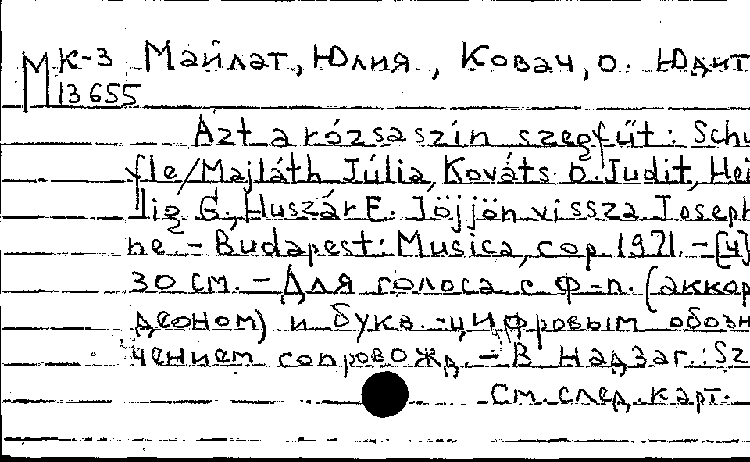 М К-3 Майлат, Юлия, Ковач, о. Юдит
13655
Azt a rózsaszín szegfűt: Schu
fle/Majláth Júlia, Kováts o. Judit, Hei
lig G., Huszár E. Jöjjön vissza Joseph
ne. - Budapest: Musica, cop. 1971. - [4]
30 см. - Для голоса с ф-п. (аккор
деоном) и букв.-цифровым обозн
чением сопровожд. - В надзаг.: Sz
См. след. карт.